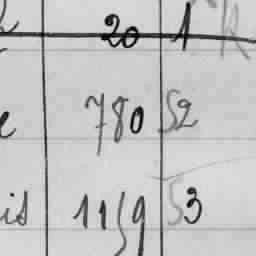 20 1
780 52
is 1159 53